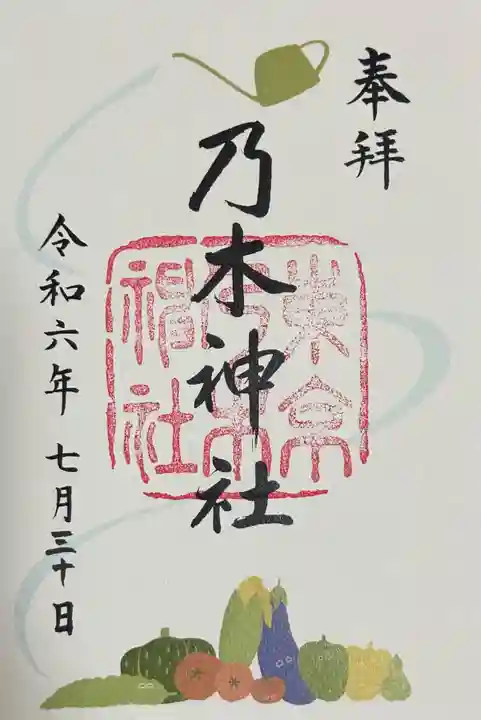 奉拝
乃木神社
令和六年 七月三十日
東京
乃木
神社